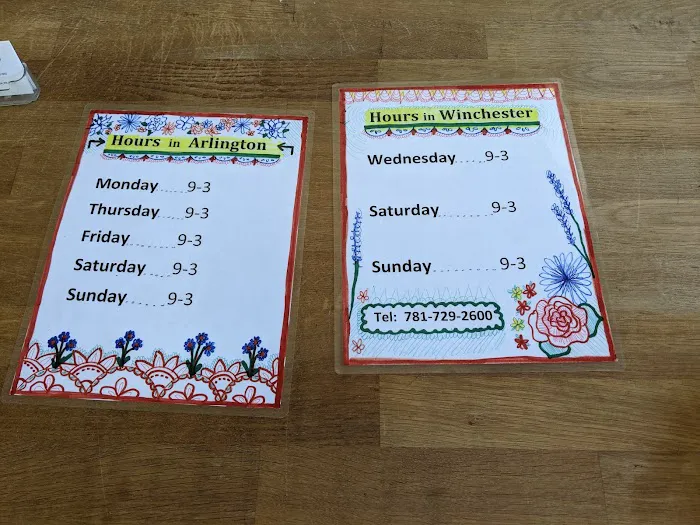 Hours in Arlington
Monday.....9-3
Thursday.....9-3
Friday.......9-3
Saturday.....9-3
Sunday......9-3
Hours in Winchester
Wednesday.....9-3
Saturday.........9-3
Sunday...........9-3
Tel: 781-729-2600